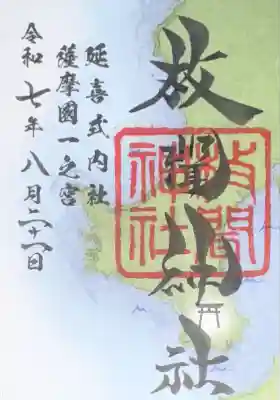 枚聞神社
枚聞
神社
延喜式内社
薩摩國一之宮
令和七年八月二十一日